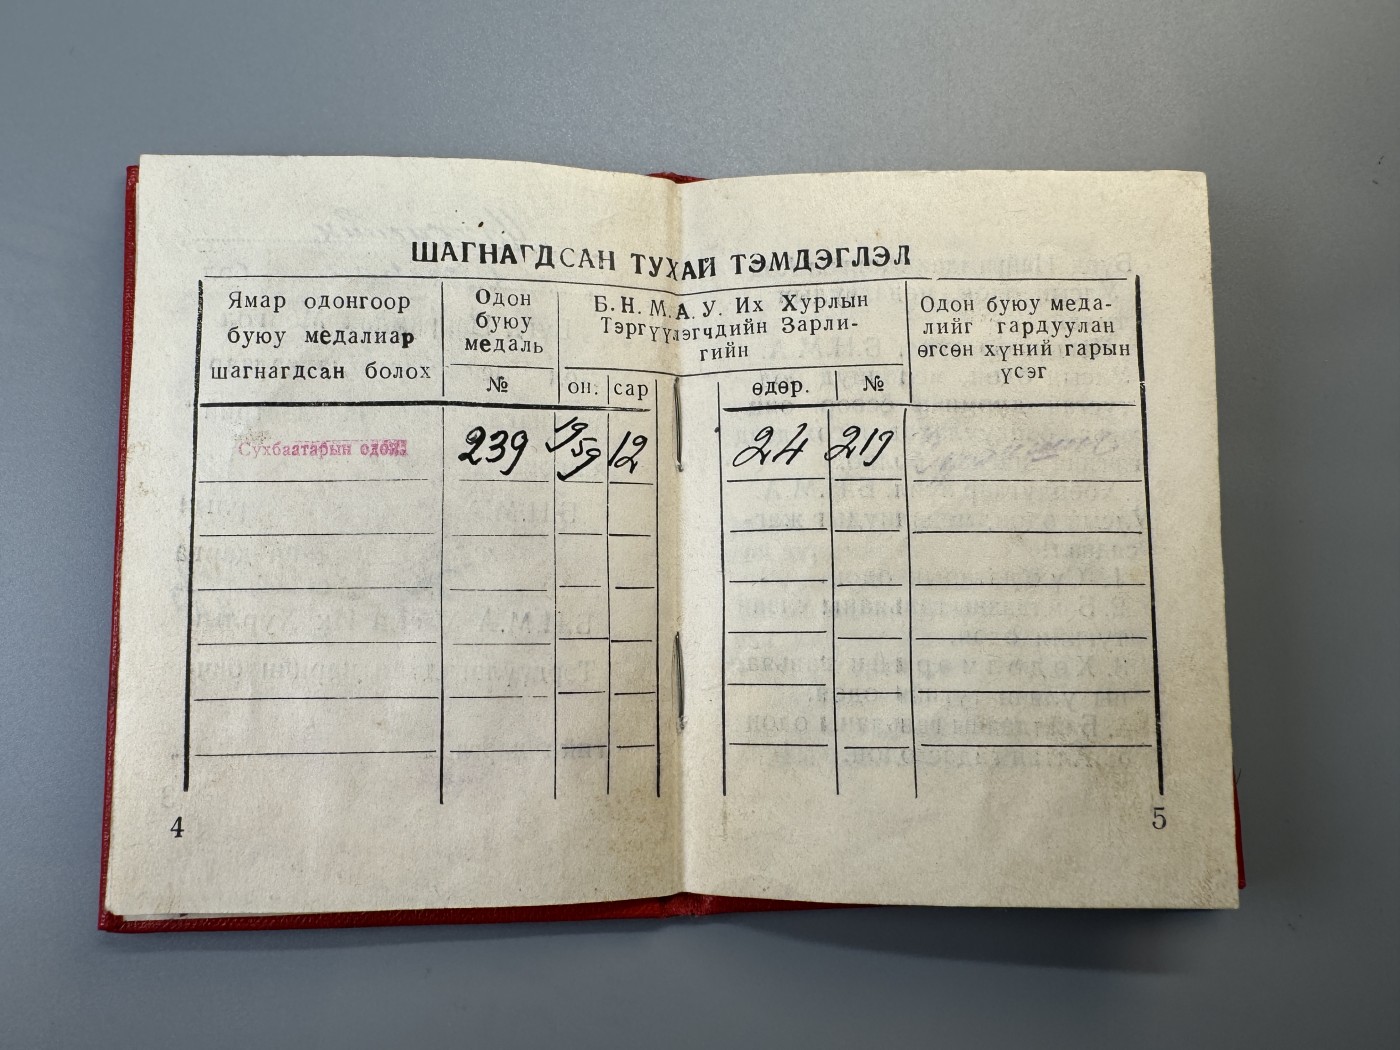 ШАГНАГДСАН ТУХАЙ ТЭМДЭГЛЭЛ
Ямар одонгоор
буюу медалиар
шагнагдсан болох
Одон
буюу
медаль
№
Б. Н. М. А. У. Их Хурлын
Тэргүүлэгчдийн Зарли-
гийн
он. сар
өдөр. №
Одон буюу меда-
лийг гардуулан
өгсөн хүний гарын
үсэг
Сухбаатарын одон
239 1959 12 24 219
4
5